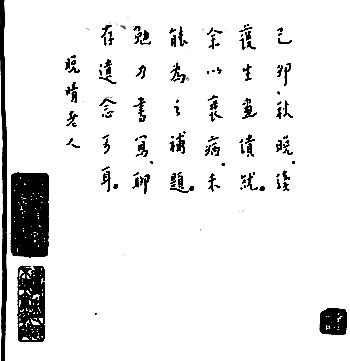 己卯秋晚，續
護生畫績就。
余以衰病，未
能為之補題。
勉力書寫，聊
存遺念可耳。
晚晴老人